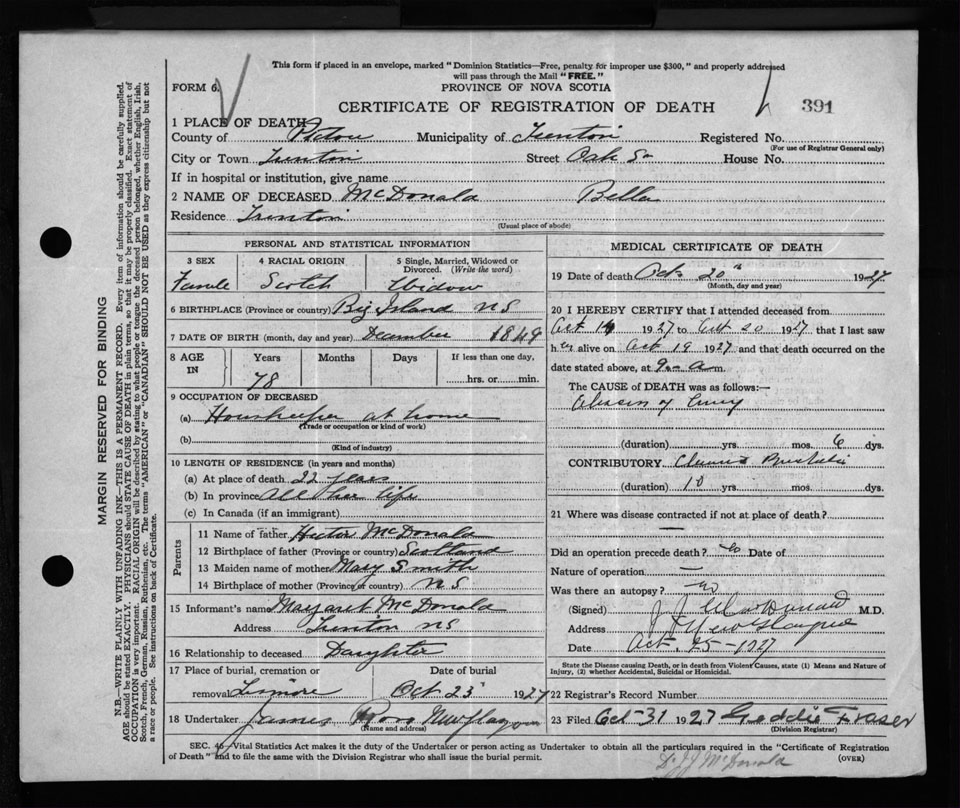 This form if placed in an envelope, marked "Dominion Statistics—Free, penalty for improper use $300," and properly addressed
will pass through the Mail "FREE."
FORM 6.
PROVINCE OF NOVA SCOTIA
CERTIFICATE OF REGISTRATION OF DEATH
391
1 PLACE OF DEATH
County of Pictou Municipality of Trenton Registered No.
(For use of Registrar General only)
City or Town Trenton Street Oak St House No.
If in hospital or institution, give name
2 NAME OF DECEASED McDonald Bella
Residence Trenton
(Usual place of abode)
PERSONAL AND STATISTICAL INFORMATION
3 SEX 4 RACIAL ORIGIN 5 Single, Married, Widowed or
Divorced. (Write the word)
Female Scotch Widow
6 BIRTHPLACE (Province or country) Big Island NS
7 DATE OF BIRTH (month, day and year) December 1849
8 AGE IN Years Months Days If less than one day,
78 hrs. or min.
9 OCCUPATION OF DECEASED
(a) Housekeeper at home
(Trade or occupation or kind of work)
(b)
(Kind of industry)
10 LENGTH OF RESIDENCE (in years and months)
(a) At place of death 22 years
(b) In province All her life
(c) In Canada (if an immigrant)
Parents
11 Name of father Hector McDonald
12 Birthplace of father (Province or country) Scotland
13 Maiden name of mother Mary Smith
14 Birthplace of mother (Province or country) NS
15 Informant's name Margaret McDonald
Address Trenton NS
16 Relationship to deceased Daughter
17 Place of burial, cremation or Date of burial
removal Lismore Oct 23 1927
18 Undertaker James Ross New Glasgow
(Name and address)
MEDICAL CERTIFICATE OF DEATH
19 Date of death Oct 20th 1927
(Month, day and year)
20 I HEREBY CERTIFY that I attended deceased from
Oct 14 1927 to Oct 20 1927, that I last saw
her alive on Oct 19 1927 and that death occurred on the
date stated above, at 9 a m.
The CAUSE of DEATH was as follows:—
(duration) yrs. mos. 6 dys.
CONTRIBUTORY Chronic
(duration) 10 yrs. mos. dys.
21 Where was disease contracted if not at place of death?
—
Did an operation precede death? no Date of
Nature of operation —
Was there an autopsy? no
(Signed) J J MacDonald M.D.
Address New Glasgow
Date Oct. 25-1927
State the Disease causing Death, or in death from Violent Causes, state (1) Means and Nature of
Injury, (2) whether Accidental, Suicidal or Homicidal.
22 Registrar's Record Number
23 Filed Oct-31 1927 Geddie Fraser
(Division Registrar)
SEC. 46 Vital Statistics Act makes it the duty of the Undertaker or person acting as Undertaker to obtain all the particulars required in the "Certificate of Registration
of Death" and to file the same with the Division Registrar who shall issue the burial permit.
(OVER)
Dr JJ McDonald
MARGIN RESERVED FOR BINDING
N.B.—WRITE PLAINLY, WITH UNFADING INK—THIS IS A PERMANENT RECORD. Every item of information should be carefully supplied.
AGE should be stated EXACTLY. PHYSICIANS should STATE CAUSE OF DEATH in plain terms, so that it may be properly classified. Exact statement of
OCCUPATION is very important. RACIAL ORIGIN will be described by stating to what people or tongue the deceased person belonged, whether English, Irish,
Scotch, French, German, Russian, Ruthenian, etc. The terms "AMERICAN" or "CANADIAN" SHOULD NOT BE USED as they express citizenship but not
a race or people. See instructions on back of Certificate.